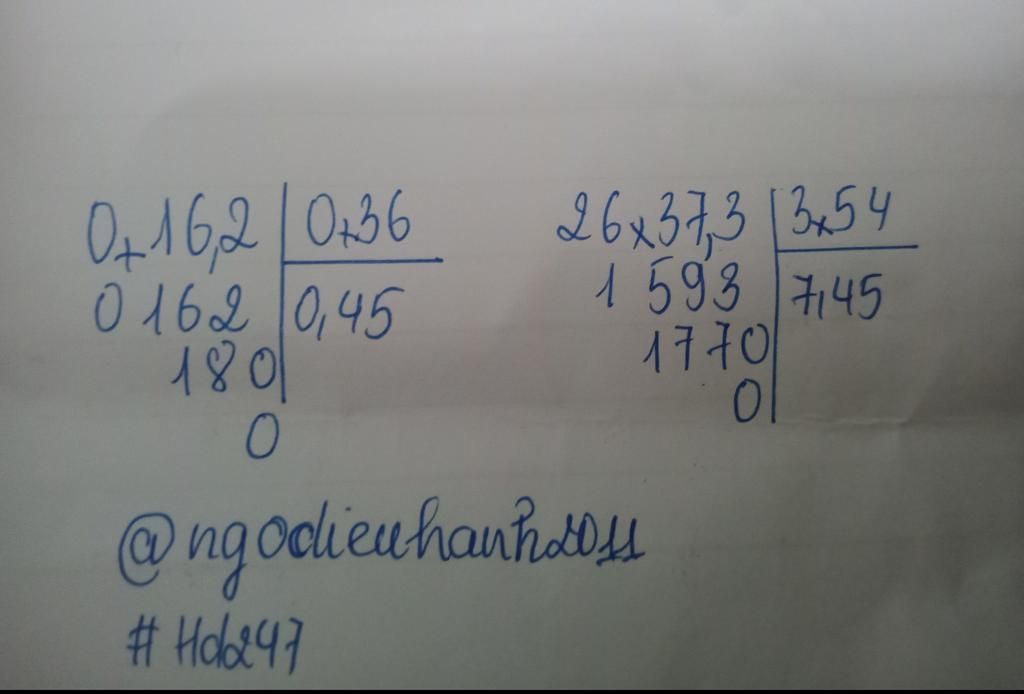 0,16,2 | 0,36
0162 | 0,45
180
0
26,37,3 | 3,54
1 593 | 7,45
1770
0
@ngodieuhanh2011
#Hd247